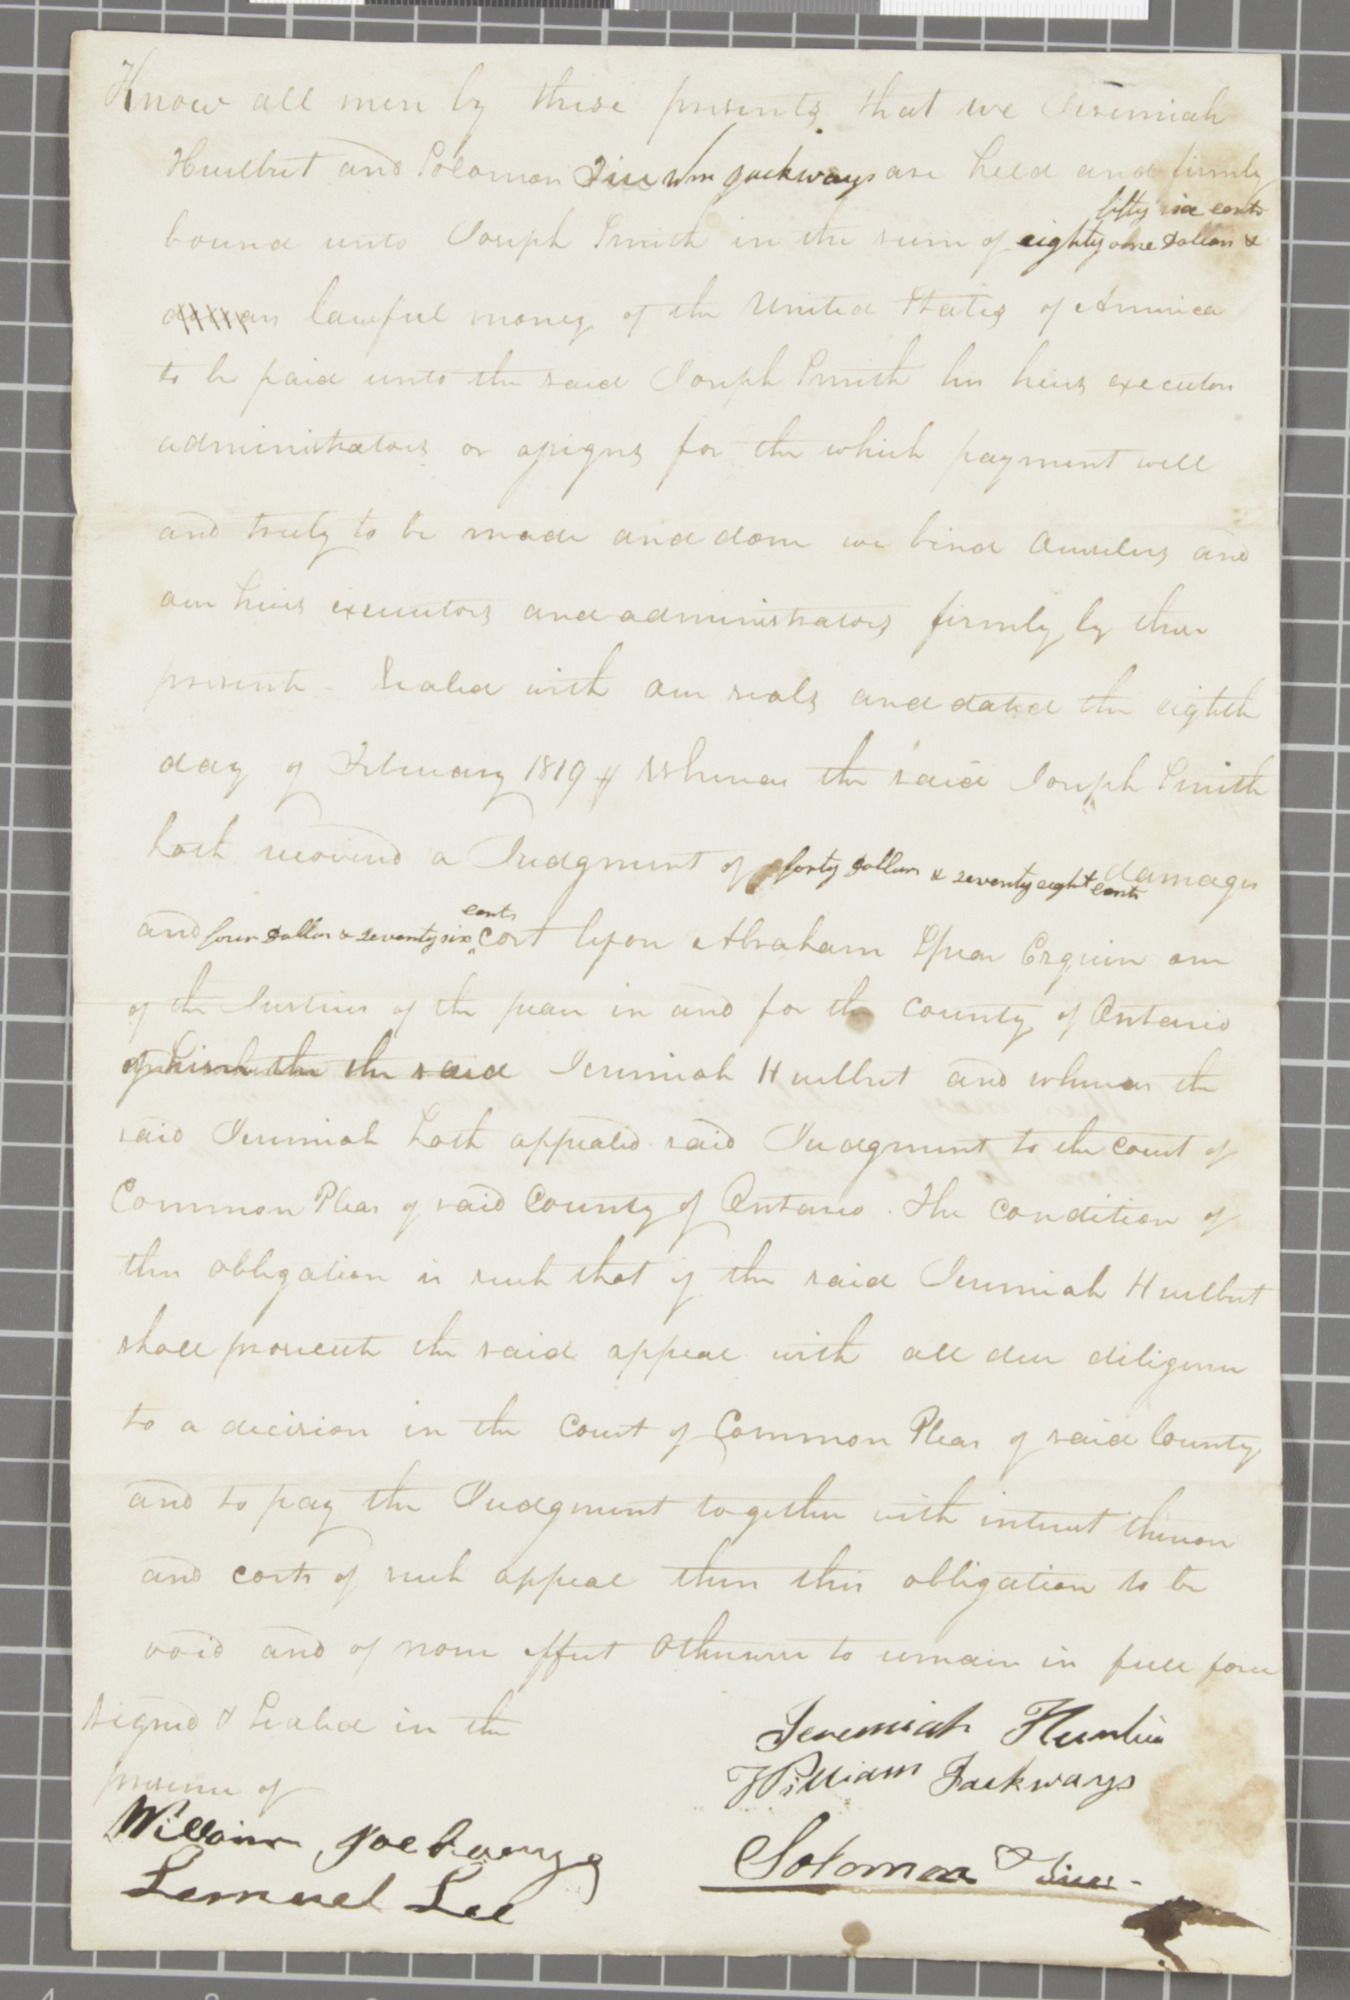 Know all men by these presents that we Jeremiah
Hurlbut and Solomon Tice Wm Jackways are held and firmly
fifty six cents
bound unto Joseph Smith in the sum of eighty one Dollars &
lawful money of the United States of America
to be paid unto the said Joseph Smith his heirs executors
administrators or assigns for the which payment well
and truly to be made and done we bind ourselves and
our heirs executors and administrators firmly by these
presents - Sealed with our seals and dated the eighth
day of February 1819 Whereas the said Joseph Smith
hath recovered a Judgment of forty Dollars & seventy eight cents damages
cents
and four Dollars & seventy six cost before Abraham Spear Esquire one
of the Justices of the peace in and for the county of Ontario
the the said Jeremiah Hurlbut and whereas the
said Jeremiah hath appealed said Judgment to the court of
Common Pleas of said County of Ontario. The condition of
this obligation is such that if the said Jeremiah Hurlbut
shall prosecute the said appeal with all due diligence
to a decision in the Court of Common Pleas of said County
and to pay the Judgment together with interest thereon
and costs of such appeal then this obligation to be
void and of none effect otherwise to remain in full force
Signed & Sealed in the
presence of
Jeremiah Hurlbut
William Jackways
William Jackways
Lemuel Lee
Solomon Tice